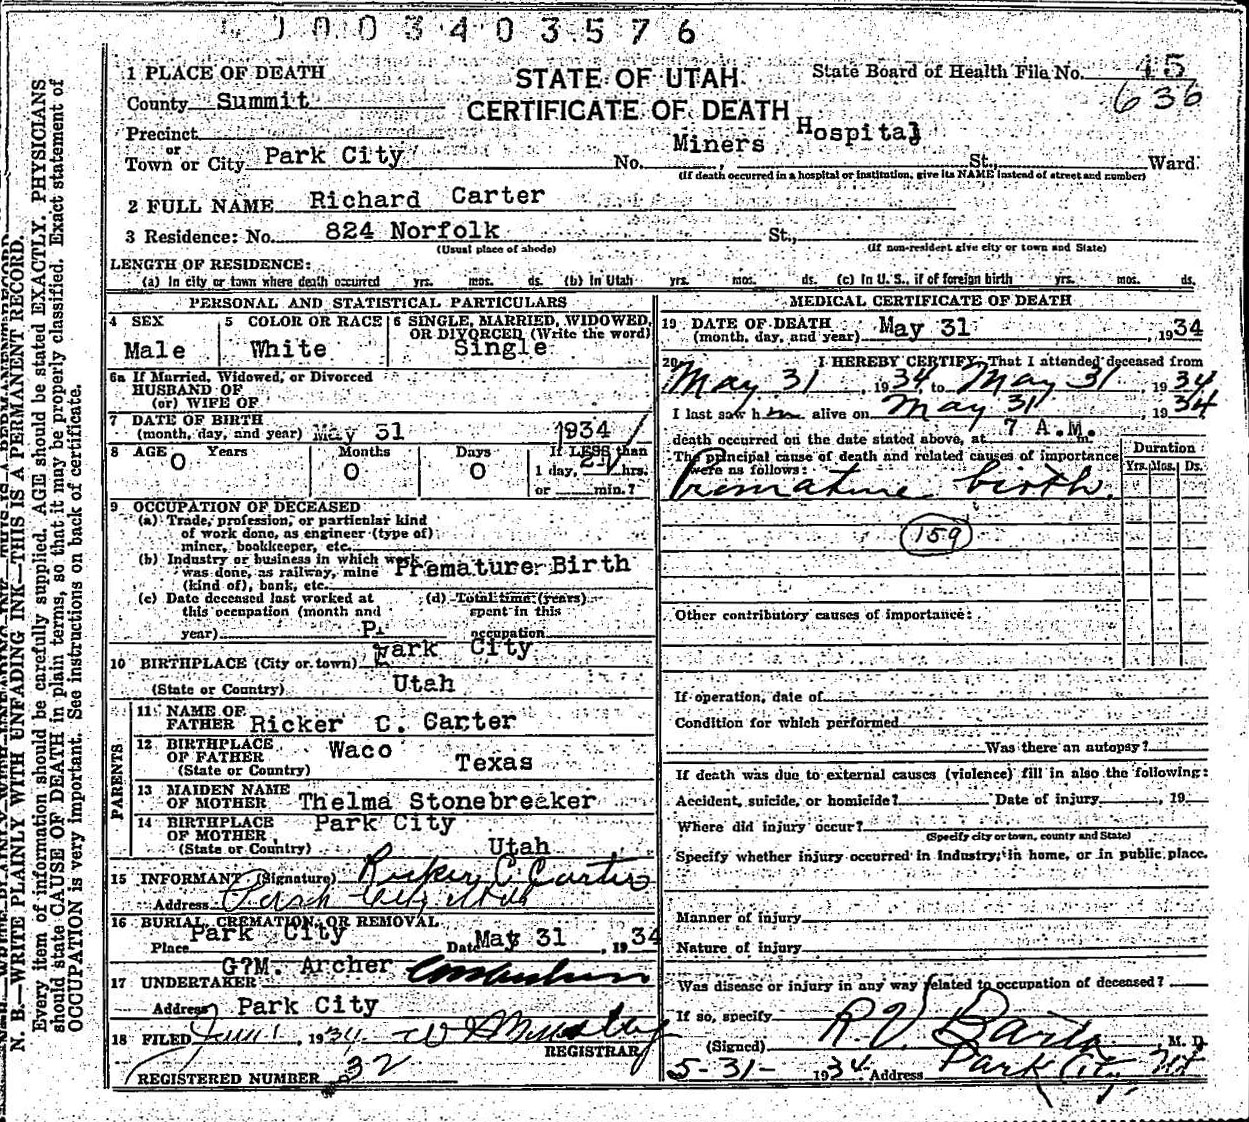 1003403576
1 PLACE OF DEATH
STATE OF UTAH
State Board of Health File No. 45
County Summit
CERTIFICATE OF DEATH
636
Precinct
or
Town or City Park City No. Miners Hospital St., Ward
(If death occurred in a hospital or institution, give its NAME instead of street and number)
2 FULL NAME Richard Carter
3 Residence: No. 824 Norfolk St.,
(Usual place of abode) (If non-resident give city or town and State)
LENGTH OF RESIDENCE:
(a) In city or town where death occurred yrs. mos. ds. (b) In Utah yrs. mos. ds. (c) In U. S., if of foreign birth yrs. mos. ds.
PERSONAL AND STATISTICAL PARTICULARS
4 SEX 5 COLOR OR RACE 6 SINGLE, MARRIED, WIDOWED,
OR DIVORCED (Write the word)
Male White Single
6a If Married, Widowed, or Divorced
HUSBAND OF
(or) WIFE OF
7 DATE OF BIRTH
(month, day, and year) May 31 1934
8 AGE Years Months Days If LESS than
0 0 0 1 day, hrs.
or min.?
9 OCCUPATION OF DECEASED
(a) Trade, profession, or particular kind
of work done, as engineer (type of)
miner, bookkeeper, etc.
(b) Industry or business in which work
was done, as railway, mine Premature Birth
(kind of), bank, etc.
(c) Date deceased last worked at (d) Total time (years)
this occupation (month and spent in this
year) P occupation
10 BIRTHPLACE (City or town) Park City
(State or Country) Utah
PARENTS
11 NAME OF
FATHER Ricker C. Carter
12 BIRTHPLACE
OF FATHER Waco
(State or Country) Texas
13 MAIDEN NAME
OF MOTHER Thelma Stonebreaker
14 BIRTHPLACE Park City
OF MOTHER
(State or Country) Utah
15 INFORMANT (Signature) Ricker C Carter
Address Park City Utah
16 BURIAL, CREMATION, OR REMOVAL
Place Park City Date May 31, 1934
G?M. Archer
17 UNDERTAKER
Address Park City
18 FILED June 1, 1934
REGISTRAR
REGISTERED NUMBER 32
MEDICAL CERTIFICATE OF DEATH
19 DATE OF DEATH
(month, day, and year) May 31, 1934
20 I HEREBY CERTIFY, That I attended deceased from
May 31, 1934 to May 31, 1934
I last saw him alive on May 31, 1934
death occurred on the date stated above, at 7 A.M. m.
The principal cause of death and related causes of importance
were as follows:
Duration
Yrs. Mos. Ds.
Premature birth.
159
Other contributory causes of importance:
If operation, date of
Condition for which performed
Was there an autopsy?
If death was due to external causes (violence) fill in also the following:
Accident, suicide, or homicide? Date of injury, 19
Where did injury occur?
(Specify city or town, county and State)
Specify whether injury occurred in industry, in home, or in public place.
Manner of injury
Nature of injury
Was disease or injury in any way related to occupation of deceased?
If so, specify
(Signed) R. V. Barta, M. D.
5-31- 1934 Address Park City, Ut
N. B.—WRITE PLAINLY WITH UNFADING INK—THIS IS A PERMANENT RECORD.
Every item of information should be carefully supplied. AGE should be stated EXACTLY. PHYSICIANS
should state CAUSE OF DEATH in plain terms, so that it may be properly classified. Exact statement of
OCCUPATION is very important. See instructions on back of certificate.